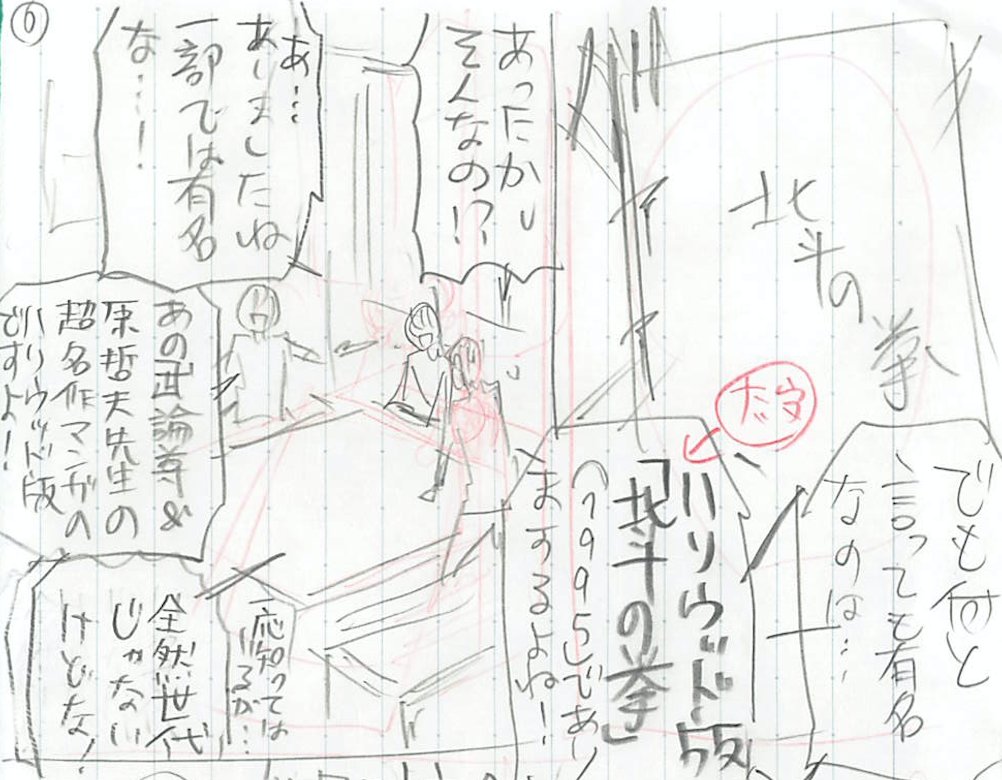 6
北斗の拳
でも何と
言っても有名
なのは…
太字
ハリウッド版
「北斗の拳」
(1995)であり
ますよね!
あったかし
そんなの!?
あ…
ありましたね
一部では有名
な…!
あの武論尊&
原哲夫先生の
超名作マンガの
ハリウッド版
ですよ!
応知っては
いるが…
全然世代
じゃない
けどな!